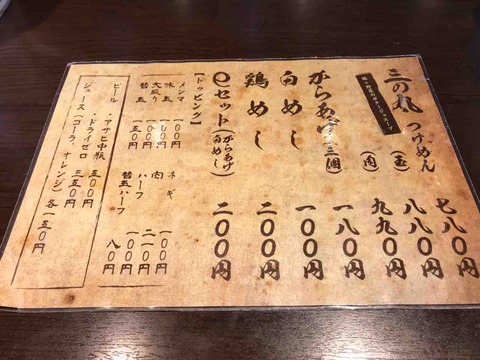 三の丸 つけめん 七八〇円
(玉) 八八〇円
(肉) 九九〇円
からあげ三個 一八〇円
白めし 一〇〇円
鶏めし 二〇〇円
セット(からあげ 白めし) 二〇〇円
【トッピング】
メンマ 一〇〇円 ネギ 一〇〇円
味玉 一〇〇円 肉 二一〇円
大盛り 一五〇円 ハーフ 一〇〇円
替玉 一五〇円 替玉ハーフ 八〇円
ビール ・アサヒ中瓶 五〇〇円
・ドライゼロ 三五〇円
ジュース(コーラ、オレンジ) 各一五〇円